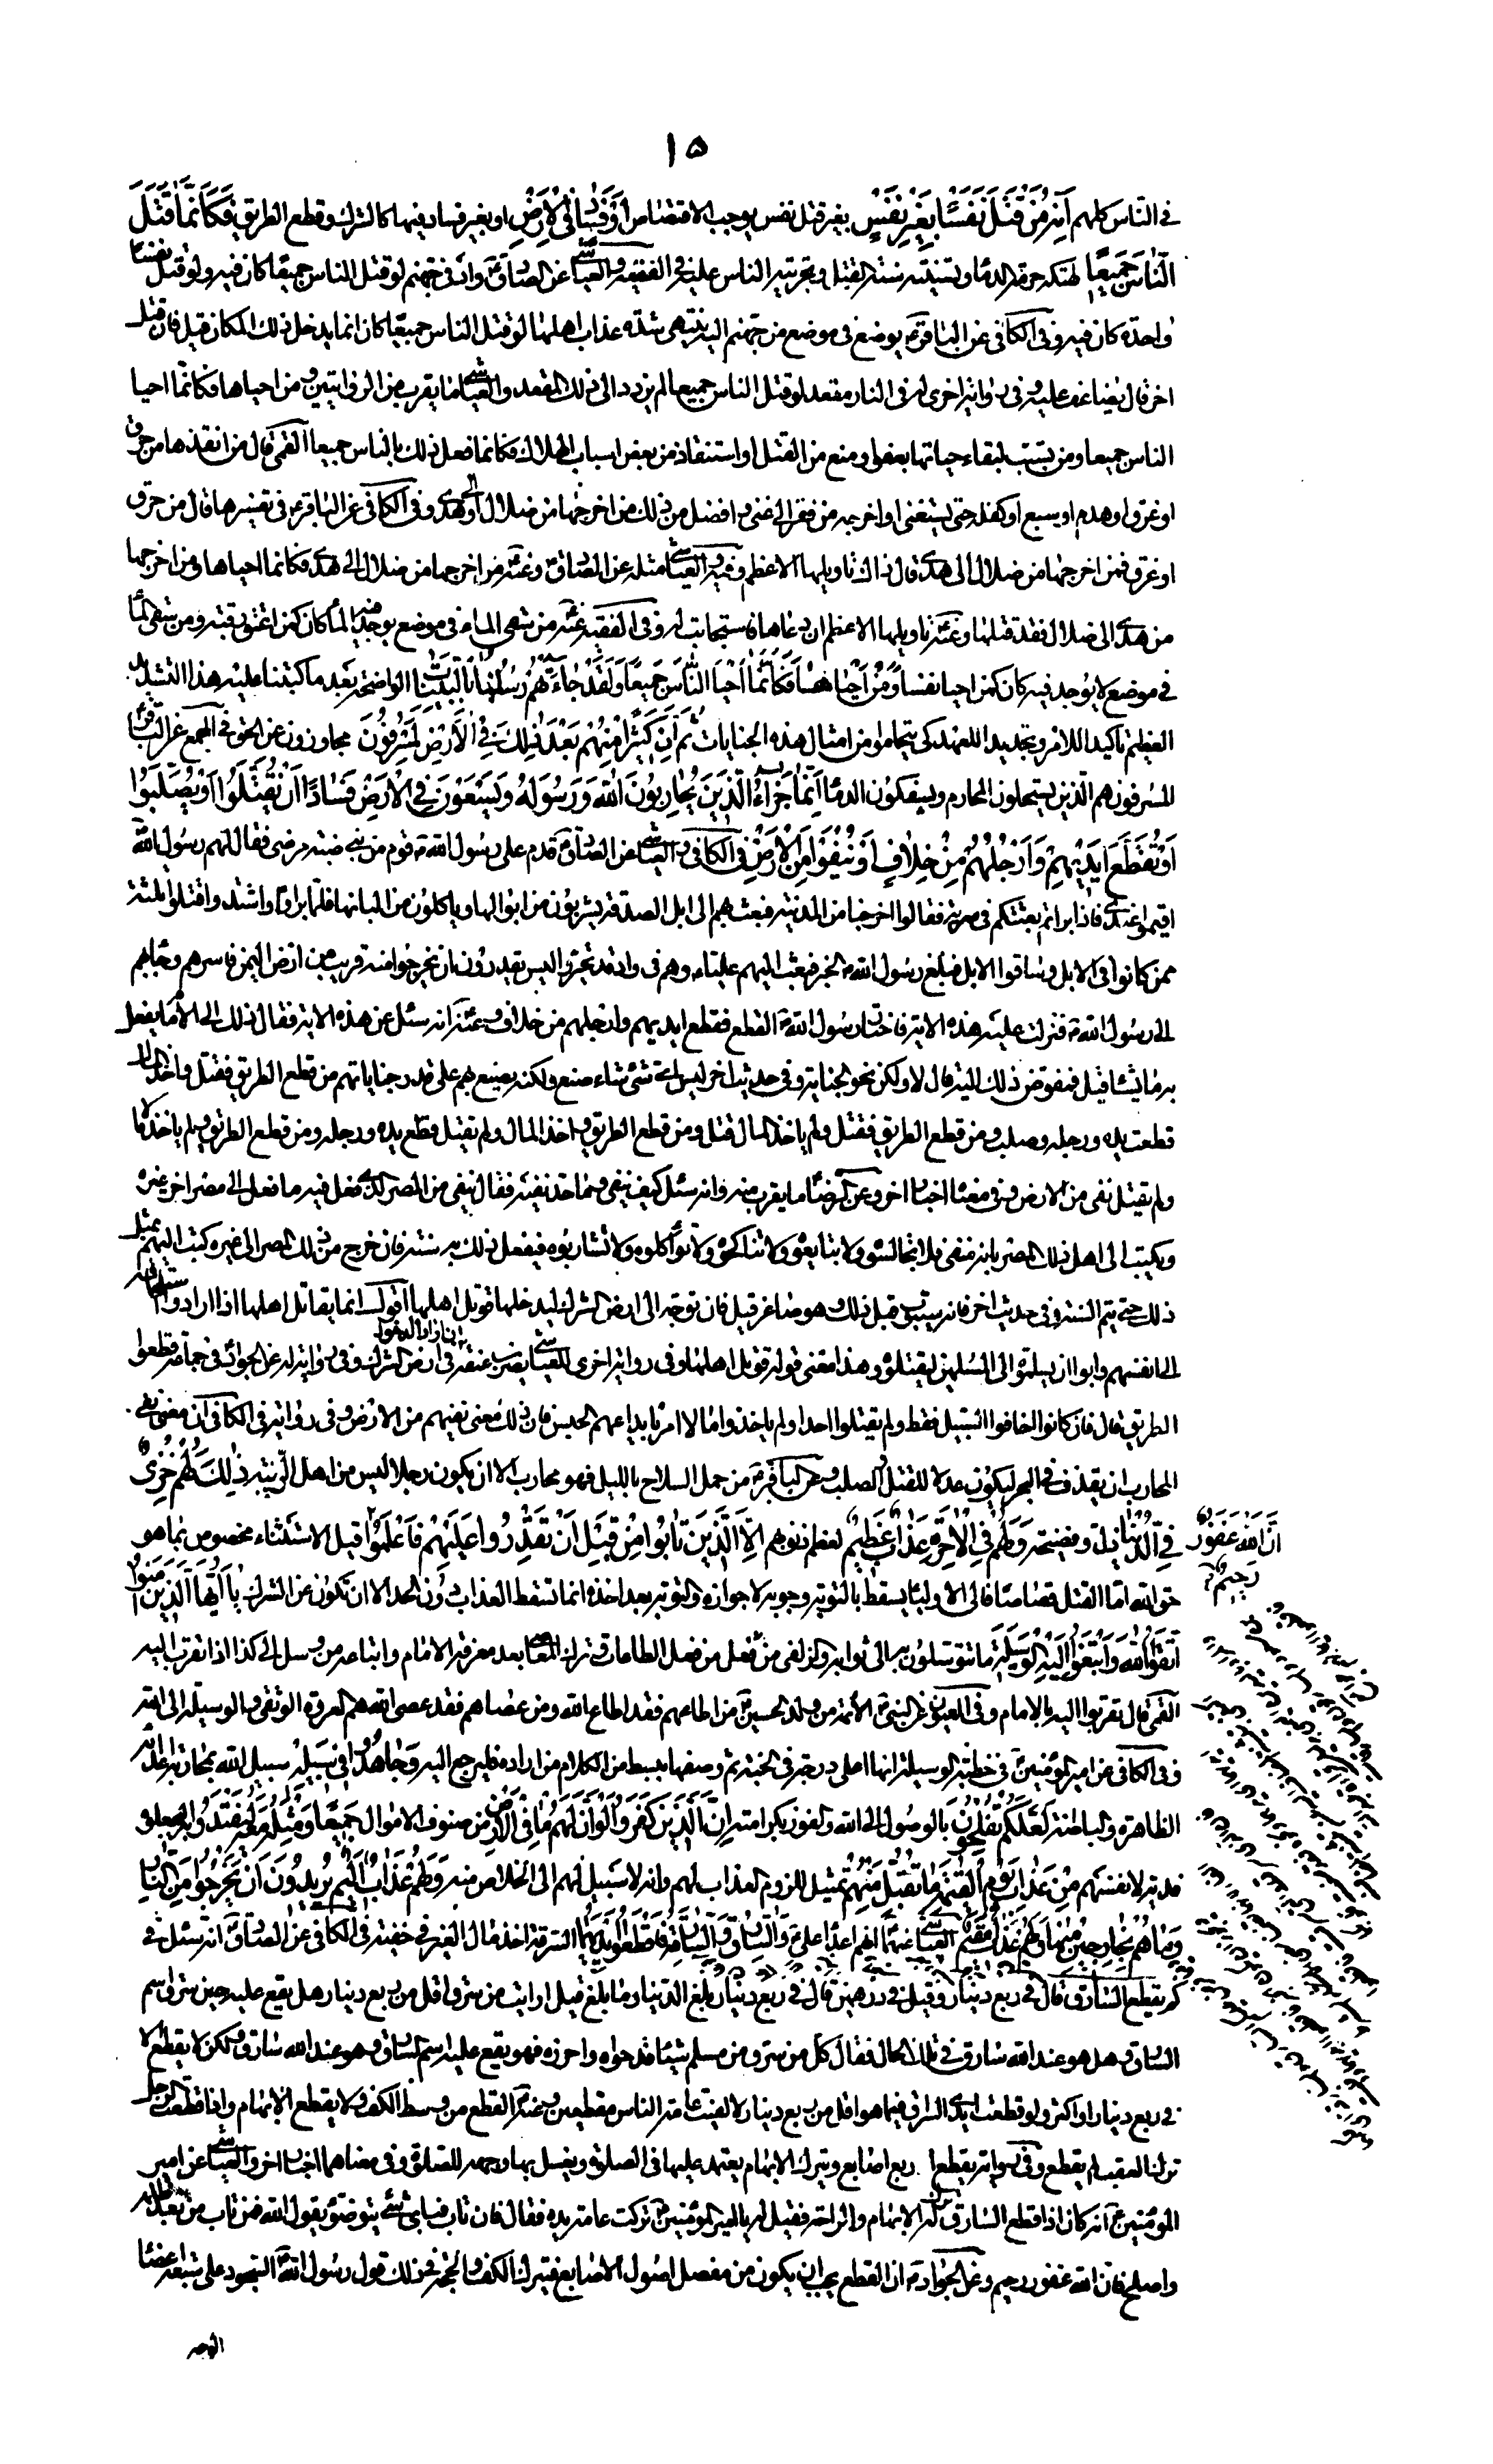 ١٥
في الناس كلهم أنه من قتل نفسا بغير نفس بغير قتل نفس يوجب الاقتصاص أو فساد في الأرض او بغير فساد فيها كالشرك وقطع الطريق فكأنما قتل
الناس جميعا لهتكه حرمة الدماء وتسنينه سنة القتل وتجرئته الناس عليه في الفقيه والعياشي عن الصادق واد في جهنم لو قتل الناس جميعا كان فيه ولو قتل نفسا
واحدة كان فيه وفي الكافي عن الباقر يوضع في موضع من جهنم اليه ينتهى شدة عذاب اهلها لو قتل الناس جميعا كان انما يدخل ذلك المكان قيل فان قتل
اخر قال يضاعف عليه وفي رواية اخرى له في النار مقعد لو قتل الناس جميعا لم يزدد الى ذلك المقعد والعياشي ما يقرب من الروايتين ومن احياها فكانما احيا
الناس جميعا ومن تسبب لبقاء حياتها بعفو او منع من القتل او استنقاذ من بعض اسباب الهلاك فكانما فعل ذلك بالناس جميعا القمي قال من انقذها من حرق
او غرق او هدم او سبع او كفله حتى يستغنى او اخرجه من فقر الى غنى وافضل من ذلك من اخرجها من ضلال الى هدى وفي الكافي عن الباقر في تفسيرها قال من حرق
او غرق قيل فمن اخرجها من ضلال الى هدى قال ذاك تاويلها الاعظم وفيه والعياشي مثله عن الصادق وعنه من اخرجها من ضلال الى هدى فكانما احياها ومن اخرجها
من هدى الى ضلال فقد قتلها وعنه تاويلها الاعظم ان دعاها فاستجابت له وفي الفقيه عنه من سقى الماء في موضع يوجد فيه الماء كان كمن اعتق رقبة ومن سقى الماء
في موضع لا يوجد فيه كان كمن احيا نفسا ومن أحياها فكأنما أحيا الناس جميعا ولقد جاءتهم رسلنا بالبينات الواضحة بعد ما كتبنا عليهم هذا التشديد
العظيم تاكيدا للامر وتجديدا للعهد كي يتحاموا من امثال هذه الجنايات ثم إن كثيرا منهم بعد ذلك في الأرض لمسرفون مجاوزون عن الحق في المجمع عن الباقر
المسرفون هم الذين يستحلون المحارم ويسفكون الدماء إنما جزاء الذين يحاربون الله ورسوله ويسعون في الأرض فسادا أن يقتلوا أو يصلبوا
أو تقطع أيديهم وأرجلهم من خلاف أو ينفوا من الأرض في الكافي والعياشي عن الصادق قدم على رسول الله قوم من بني ضبة مرضى فقال لهم رسول الله
اقيموا عندي فاذا برأتم بعثتكم في سرية فقالوا اخرجنا من المدينة فبعث بهم الى ابل الصدقة يشربون من ابوالها وياكلون من البانها فلما برأوا واشتدوا قتلوا ثلثة
ممن كانوا في الابل وساقوا الابل فبلغ رسول الله الخبر فبعث اليهم عليا وهم في واد قد تحيروا ليس يقدرون ان يخرجوا منه قريب من ارض اليمن فاسرهم وجاء بهم
الى رسول الله فنزلت عليه هذه الاية فاختار رسول الله القطع فقطع ايديهم وارجلهم من خلاف وعنه انه سئل عن هذه الاية فقال ذلك الى الامام يفعل
به ما يشاء قيل فمفوض ذلك اليه قال لا ولكن نحو الجناية وفي حديث اخر ليس اي شئ شاء صنع ولكنه يصنع بهم على قدر جناياتهم من قطع الطريق فقتل واخذ المال
قطعت يده ورجله وصلب ومن قطع الطريق فقتل ولم ياخذ المال قتل ومن قطع الطريق واخذ المال ولم يقتل قطع يده ورجله ومن قطع الطريق ولم ياخذ مالا
ولم يقتل نفى من الارض وفي معناه اخبار اخر وعن الرضا ما يقرب منه وانه سئل كيف ينفى وما حد نفيه فقال ينفى من المصر الذي فعل فيه ما فعل الى مصر اخر غيره
ويكتب الى اهل ذلك المصر بانه منفي فلا تجالسوه ولا تبايعوه ولا تناكحوه ولا تواكلوه ولا تشاربوه فيفعل ذلك به سنة فان خرج من ذلك المصر الى غيره كتب اليهم بمثل
ذلك حتى يتم السنة وفي حديث اخر فانه سيتوب قبل ذلك وهو صاغر قيل فان توجه الى ارض الشرك ليدخلها قوتل اهلها أقول انما يقاتل اهلها اذا ارادوا
الى انفسهم وابوا ان يسلموه الى المسلمين ليقتلوه وهذا معنى قوله قوتل اهلها وفي رواية اخرى للعياشي يضرب عنقه ان اراد الدخول في ارض الشرك وفي رواية له عن الجواد في جماعة قطعوا
الطريق قال فان كانوا اخافوا السبيل فقط ولم يقتلوا احدا ولم ياخذوا مالا امر بايداعهم الحبس فان ذلك معنى نفيهم من الارض وفي رواية في الكافي ان معنى نفي
المحارب ان يقذف في البحر ليكون عدلا للقتل والصلب وعن الباقر من حمل السلاح بالليل فهو محارب الا ان يكون رجلا ليس من اهل الريبة ذلك لهم خزي
في الدنيا ذل وفضيحة ولهم في الآخرة عذاب عظيم لعظم ذنوبهم إلا الذين تابوا من قبل أن تقدروا عليهم فاعلموا قيل الاستثناء مخصوص بما هو
أن الله غفور
رحيم
حق الله اما القتل قصاصا فالى الاولياء يسقط بالتوبة وجوبه لا جوازه والتوبة بعد اخذه انما تسقط العذاب دون الحد الا ان تكون عن الشرك يا أيها الذين آمنوا
اتقوا الله وابتغوا إليه الوسيلة ما تتوسلون به الى ثوابه والزلفى منه من فعل الطاعات وترك المعاصي بعد معرفة الامام واتباعه من وسل الى كذا اذا تقرب اليه
القمي قال تقربوا اليه بالامام وفي العيون عن النبي الائمة من ولد الحسين من اطاعهم فقد اطاع الله ومن عصاهم فقد عصى الله هم العروة الوثقى والوسيلة الى الله
وفي الكافي عن امير المؤمنين في خطبة الوسيلة انها اعلى درجة في الجنة ثم وصفها ببسط من الكلام من اراده فليرجع اليه وجاهدوا في سبيله سبيل الله بمحاربة اعدائه
الظاهرة والباطنة لعلكم تفلحون بالوصول الى الله والفوز بكرامته إن الذين كفروا لو أن لهم ما في الأرض من صنوف الاموال جميعا ومثله معه ليفتدوا به ليجعلوه
فدية لانفسهم من عذاب يوم القيمة ما تقبل منهم تمثيل للزوم العذاب لهم وانه لا سبيل لهم الى الخلاص منه ولهم عذاب أليم يريدون أن يخرجوا من النار
وما هم بخارجين منها ولهم عذاب مقيم العياشي عنهما انهم اعداء علي والسارق والسارقة فاقطعوا أيديهما السرقة اخذ مال الغير في خفية في الكافي عن الصادق انه سئل في
كم يقطع السارق قال في ربع دينار وقيل في درهمين قال في ربع دينار بلغ الدينار ما بلغ قيل ارايت من سرق اقل من ربع دينار هل يقع عليه حين سرق اسم
السارق وهل هو عند الله سارق في تلك الحال فقال كل من سرق من مسلم شيئا قد حواه واحرزه فهو يقع عليه اسم السارق وهو عند الله سارق ولكن لا يقطع الا
في ربع دينار او اكثر ولو قطعت ايدي السراق فيما هو اقل من ربع دينار لالفيت عامة الناس مقطعين وعنه القطع من وسط الكف ولا يقطع الابهام واذا قطعت الرجل
ترك العقب لم يقطع وفي رواية يقطع اربع اصابع ويترك الابهام يعتمد عليها في الصلوة ويغسل بها وجهه للصلوة وفي معناهما اخبار اخر والعياشي عن امير
المؤمنين انه كان اذا قطع السارق ترك له الابهام والراحة فقيل له يا امير المؤمنين تركت عامة يده فقال فان تاب فباي شئ يتوضؤ يقول الله فمن تاب من بعد ظلمه
واصلح فان الله غفور رحيم وعن الجواد ان القطع يجب ان يكون من مفصل اصول الاصابع فيترك الكف والحجة في ذلك قول رسول الله السجود على سبعة اعضاء
الوجه